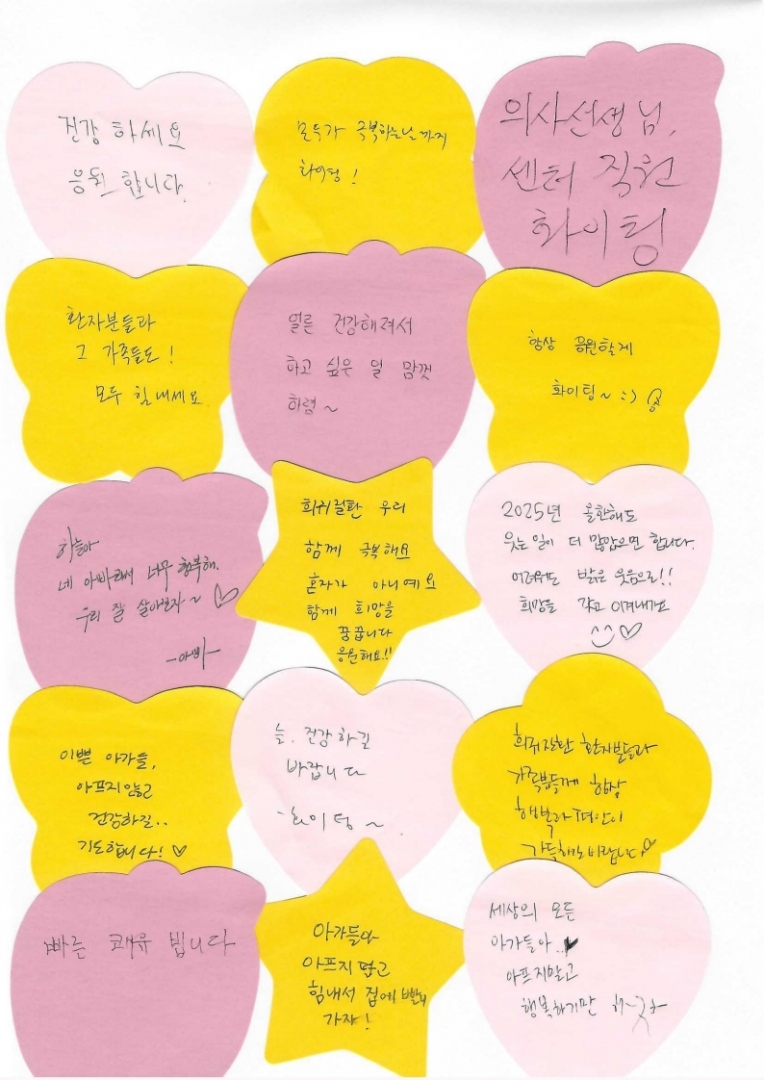 건강 하세요
응원 합니다.
모두가 극복하는날까지
화이팅!
의사선생님,
센터 직원
화이팅
환자분들과
그 가족들도!
모두 힘내세요
얼른 건강해져서
하고 싶은 일 맘껏
하렴~
항상 응원할게
화이팅~ :)
하늘아
네 아빠라서 너무 행복해.
우리 잘 살아보자~ ♡
-아빠-
희귀질환 우리
함께 극복해요
혼자가 아니예요
함께 희망을
꿈꿉니다
응원해요!!
2025년 올한해도
웃는일이 더 많았으면 합니다.
어려워도 밝은 웃음으로!!
희망을 갖고 이겨내가요
^^ ♡
이쁜 아가들,
아프지않고
건강하길..
기도합니다! ♡
늘, 건강하길
바랍니다
-화이팅~
희귀질환 환자분들과
가족분들께 항상
행복과 편안이
가득해도바랍니다♡
빠른 쾌유 빕니다
아가들아
아프지 말고
힘내서 집에 빨리
가자!
세상의 모든
아가들아..♥
아프지말고
행복하기만